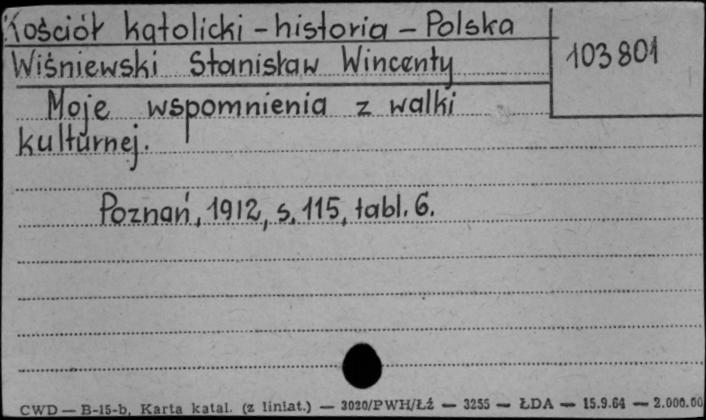 Kościół katolicki - historia - Polska
103801
Wiśniewski Stanisław Wincenty
Moje wspomnienia z walki
kulturnej.
Poznań, 1912, s. 115, tabl. 6.
CWD — B-15-b, Karta katal. (z liniat.) — 3020/PWH/Łź — 3255 — ŁDA — 15.9.64 — 2.000.00